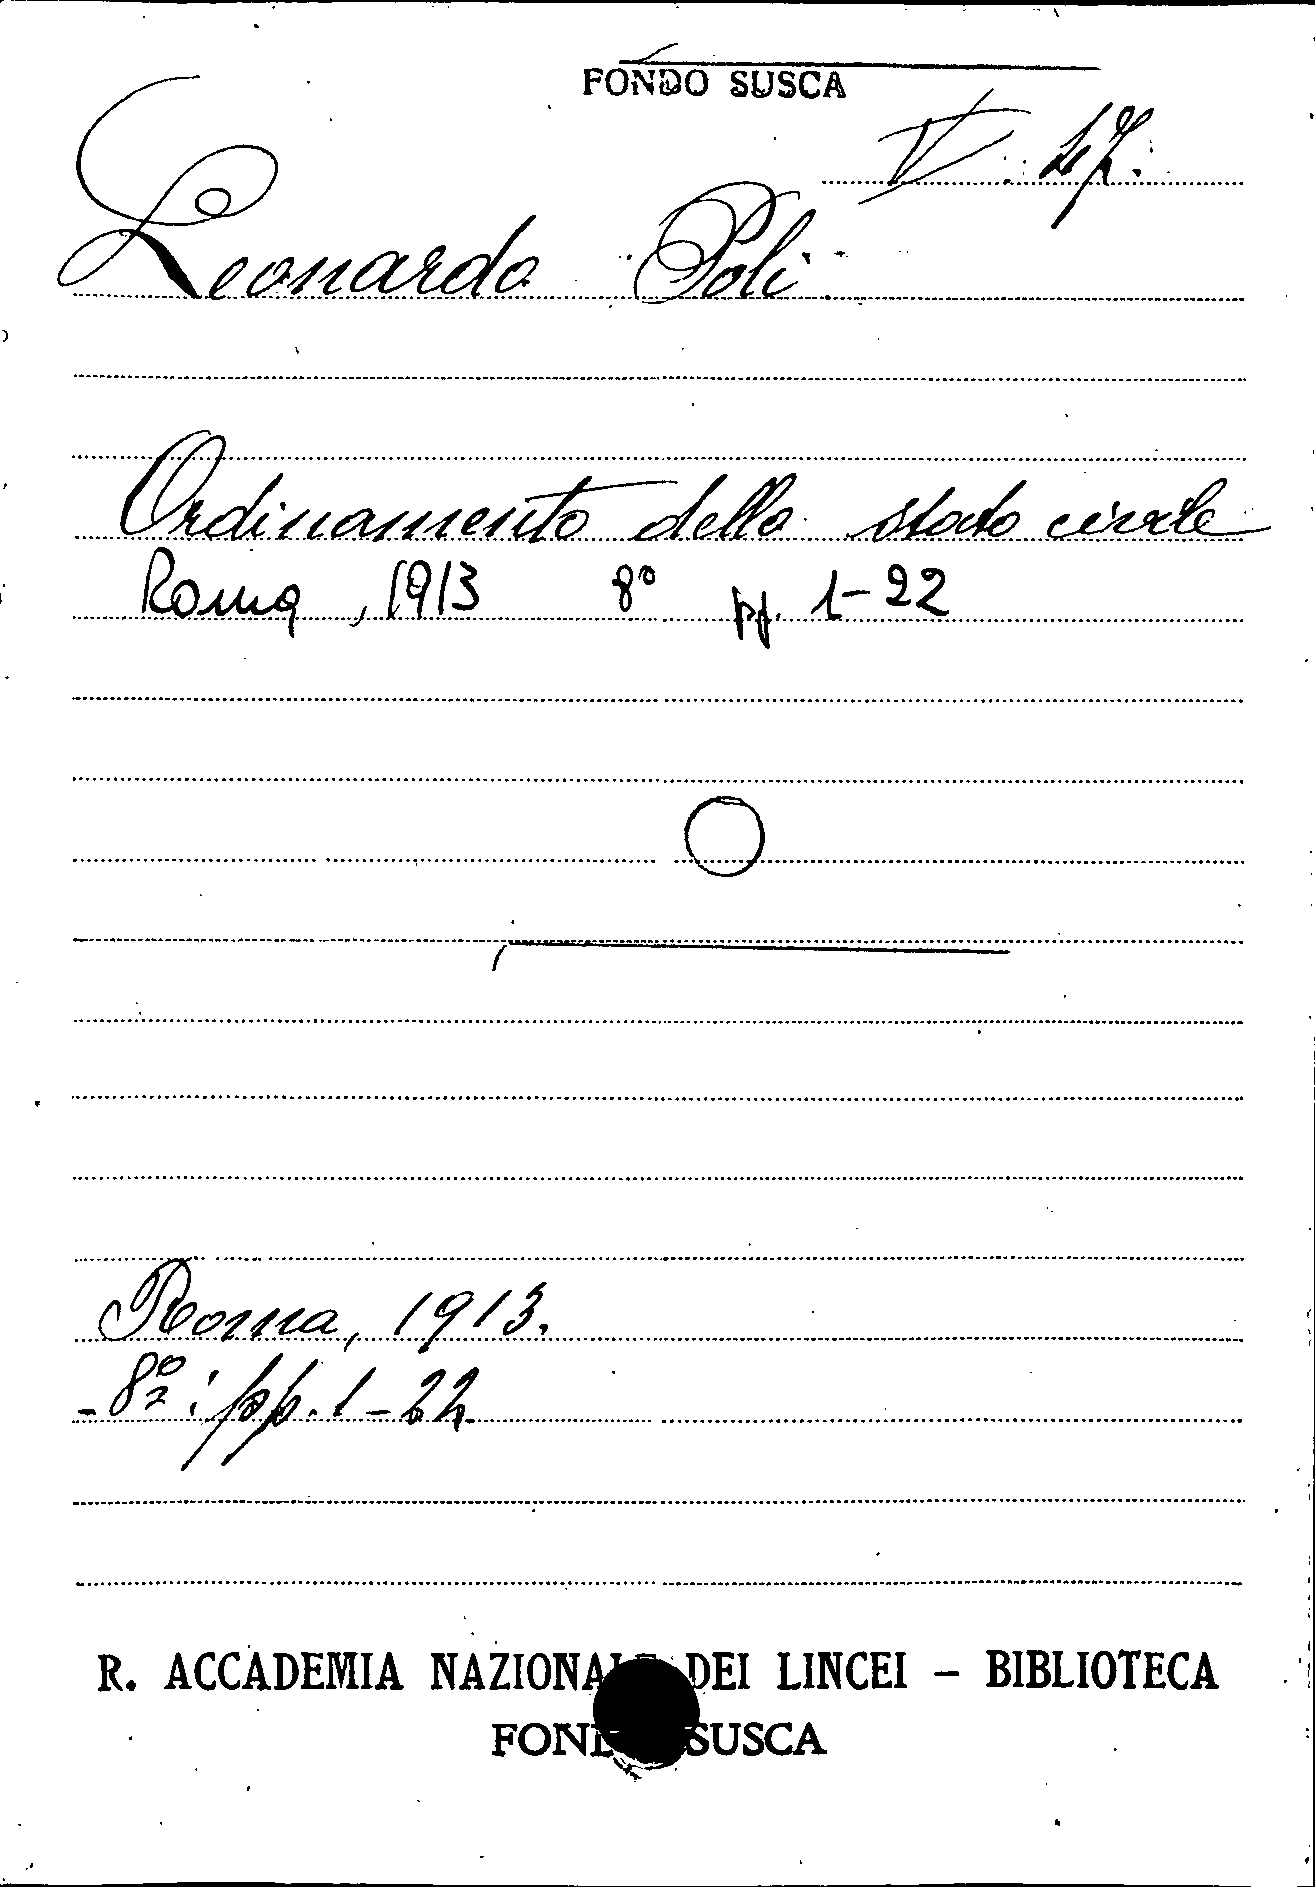 FONDO SUSCA
V. 47.
Leonardo Poli
Ordinamento dello stato civile
Roma, 1913 8° pp. 1-22
Roma, 1913.
- 8°: pp. 1-22.
R. ACCADEMIA NAZIONALE DEI LINCEI – BIBLIOTECA
FONDO SUSCA